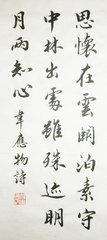 思懷在雲闕泊素守
中林出處雖殊迹明
月兩知心
韋應物詩